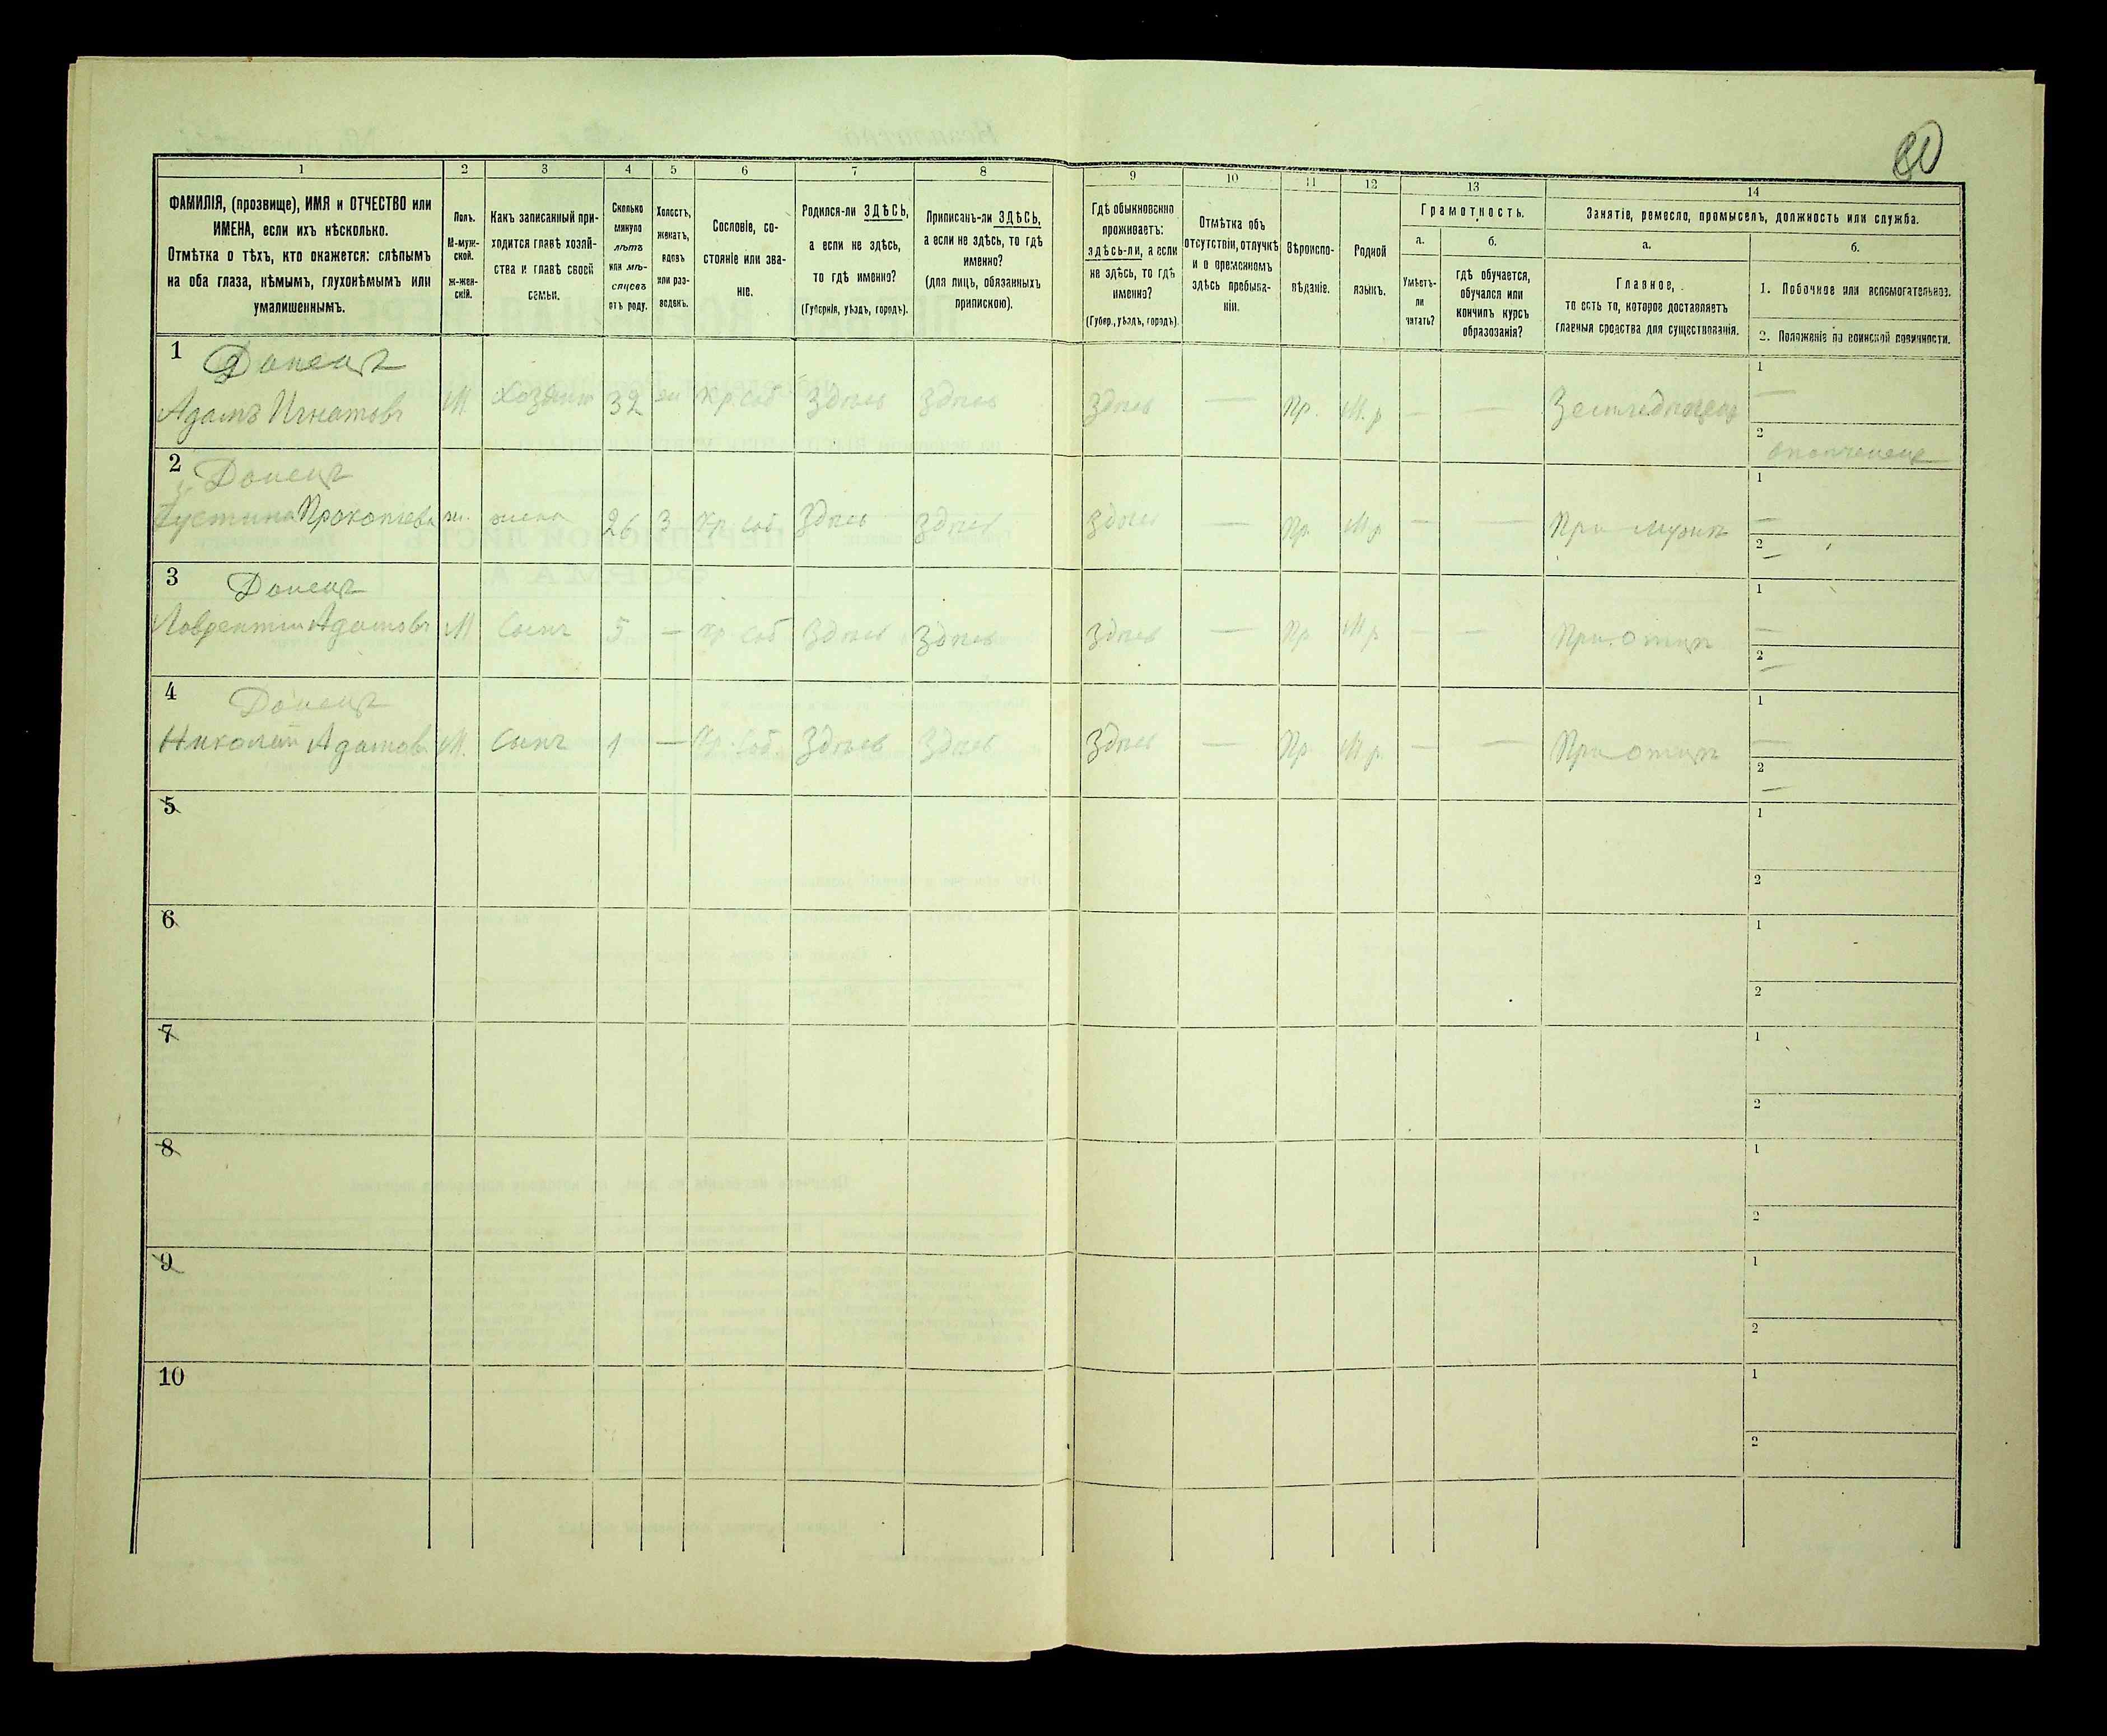 80
1 2 3 4 5 6 7 8 9 10 11 12 13 14
ФАМИЛІЯ, (прозвище), ИМЯ и ОТЧЕСТВО или
ИМЕНА, если ихъ нѣсколько.
Отмѣтка о тѣхъ, кто окажется: слѣпымъ
на оба глаза, нѣмымъ, глухонѣмымъ или
умалишеннымъ.
Полъ.
М-муж-
ской.
ж-жен-
скій.
Какъ записанный при-
ходится главѣ хозяй-
ства и главѣ своей
семьи.
Сколько
минуло
лѣтъ
или мѣ-
сяцевъ
отъ роду.
Холостъ,
женатъ,
вдовъ
или раз-
веденъ.
Сословіе, со-
стояніе или зва-
ніе.
Родился-ли ЗДѢСЬ,
а если не здѣсь,
то гдѣ именно?
(Губернія, уѣздъ, городъ).
Приписанъ-ли ЗДѢСЬ,
а если не здѣсь, то гдѣ
именно?
(для лицъ, обязанныхъ
припискою).
Гдѣ обыкновенно
проживаетъ:
здѣсь-ли, а если
не здѣсь, то гдѣ
именно?
(Губер., уѣздъ, городъ).
Отмѣтка объ
отсутствіи, отлучкѣ
и о временномъ
здѣсь пребыва-
ніи.
Вѣроиспо-
вѣданіе.
Родной
языкъ.
Грамотность.
а.
Умѣетъ-
ли
читать?
б.
гдѣ обучается,
обучался или
кончилъ курсъ
образованія?
Занятіе, ремесло, промыселъ, должность или служба.
а.
Главное,
то есть то, которое доставляетъ
главныя средства для существованія.
б.
1. Побочное или вспомогательное.
2. Положеніе по воинской повинности.
1 Донецъ 1 —
Адамъ Игнатовъ М. Хозяинъ 32 Кр соб Здѣсь Здѣсь Здѣсь — Пр. М.р — — Земледѣлецъ
2 ополченецъ
2 Донецъ 1 —
Прокопьева ж. жена 26 З Кр соб Здѣсь Здѣсь Здѣсь — Пр М р — — При мужѣ
2 —
3 Донецъ 1 —
Лаврентий Адамовъ М Сынъ 5 — Кр соб Здѣсь Здѣсь Здѣсь — Пр М р — — При отцѣ
2 —
4 Донецъ 1 —
Николай Адамовъ М. Сынъ 1 — Кр. соб. Здѣсь Здѣсь Здѣсь — Пр М р. — — При отцѣ
2 —
5 1
2
6 1
2
7 1
2
8 1
2
9 1
2
10 1
2